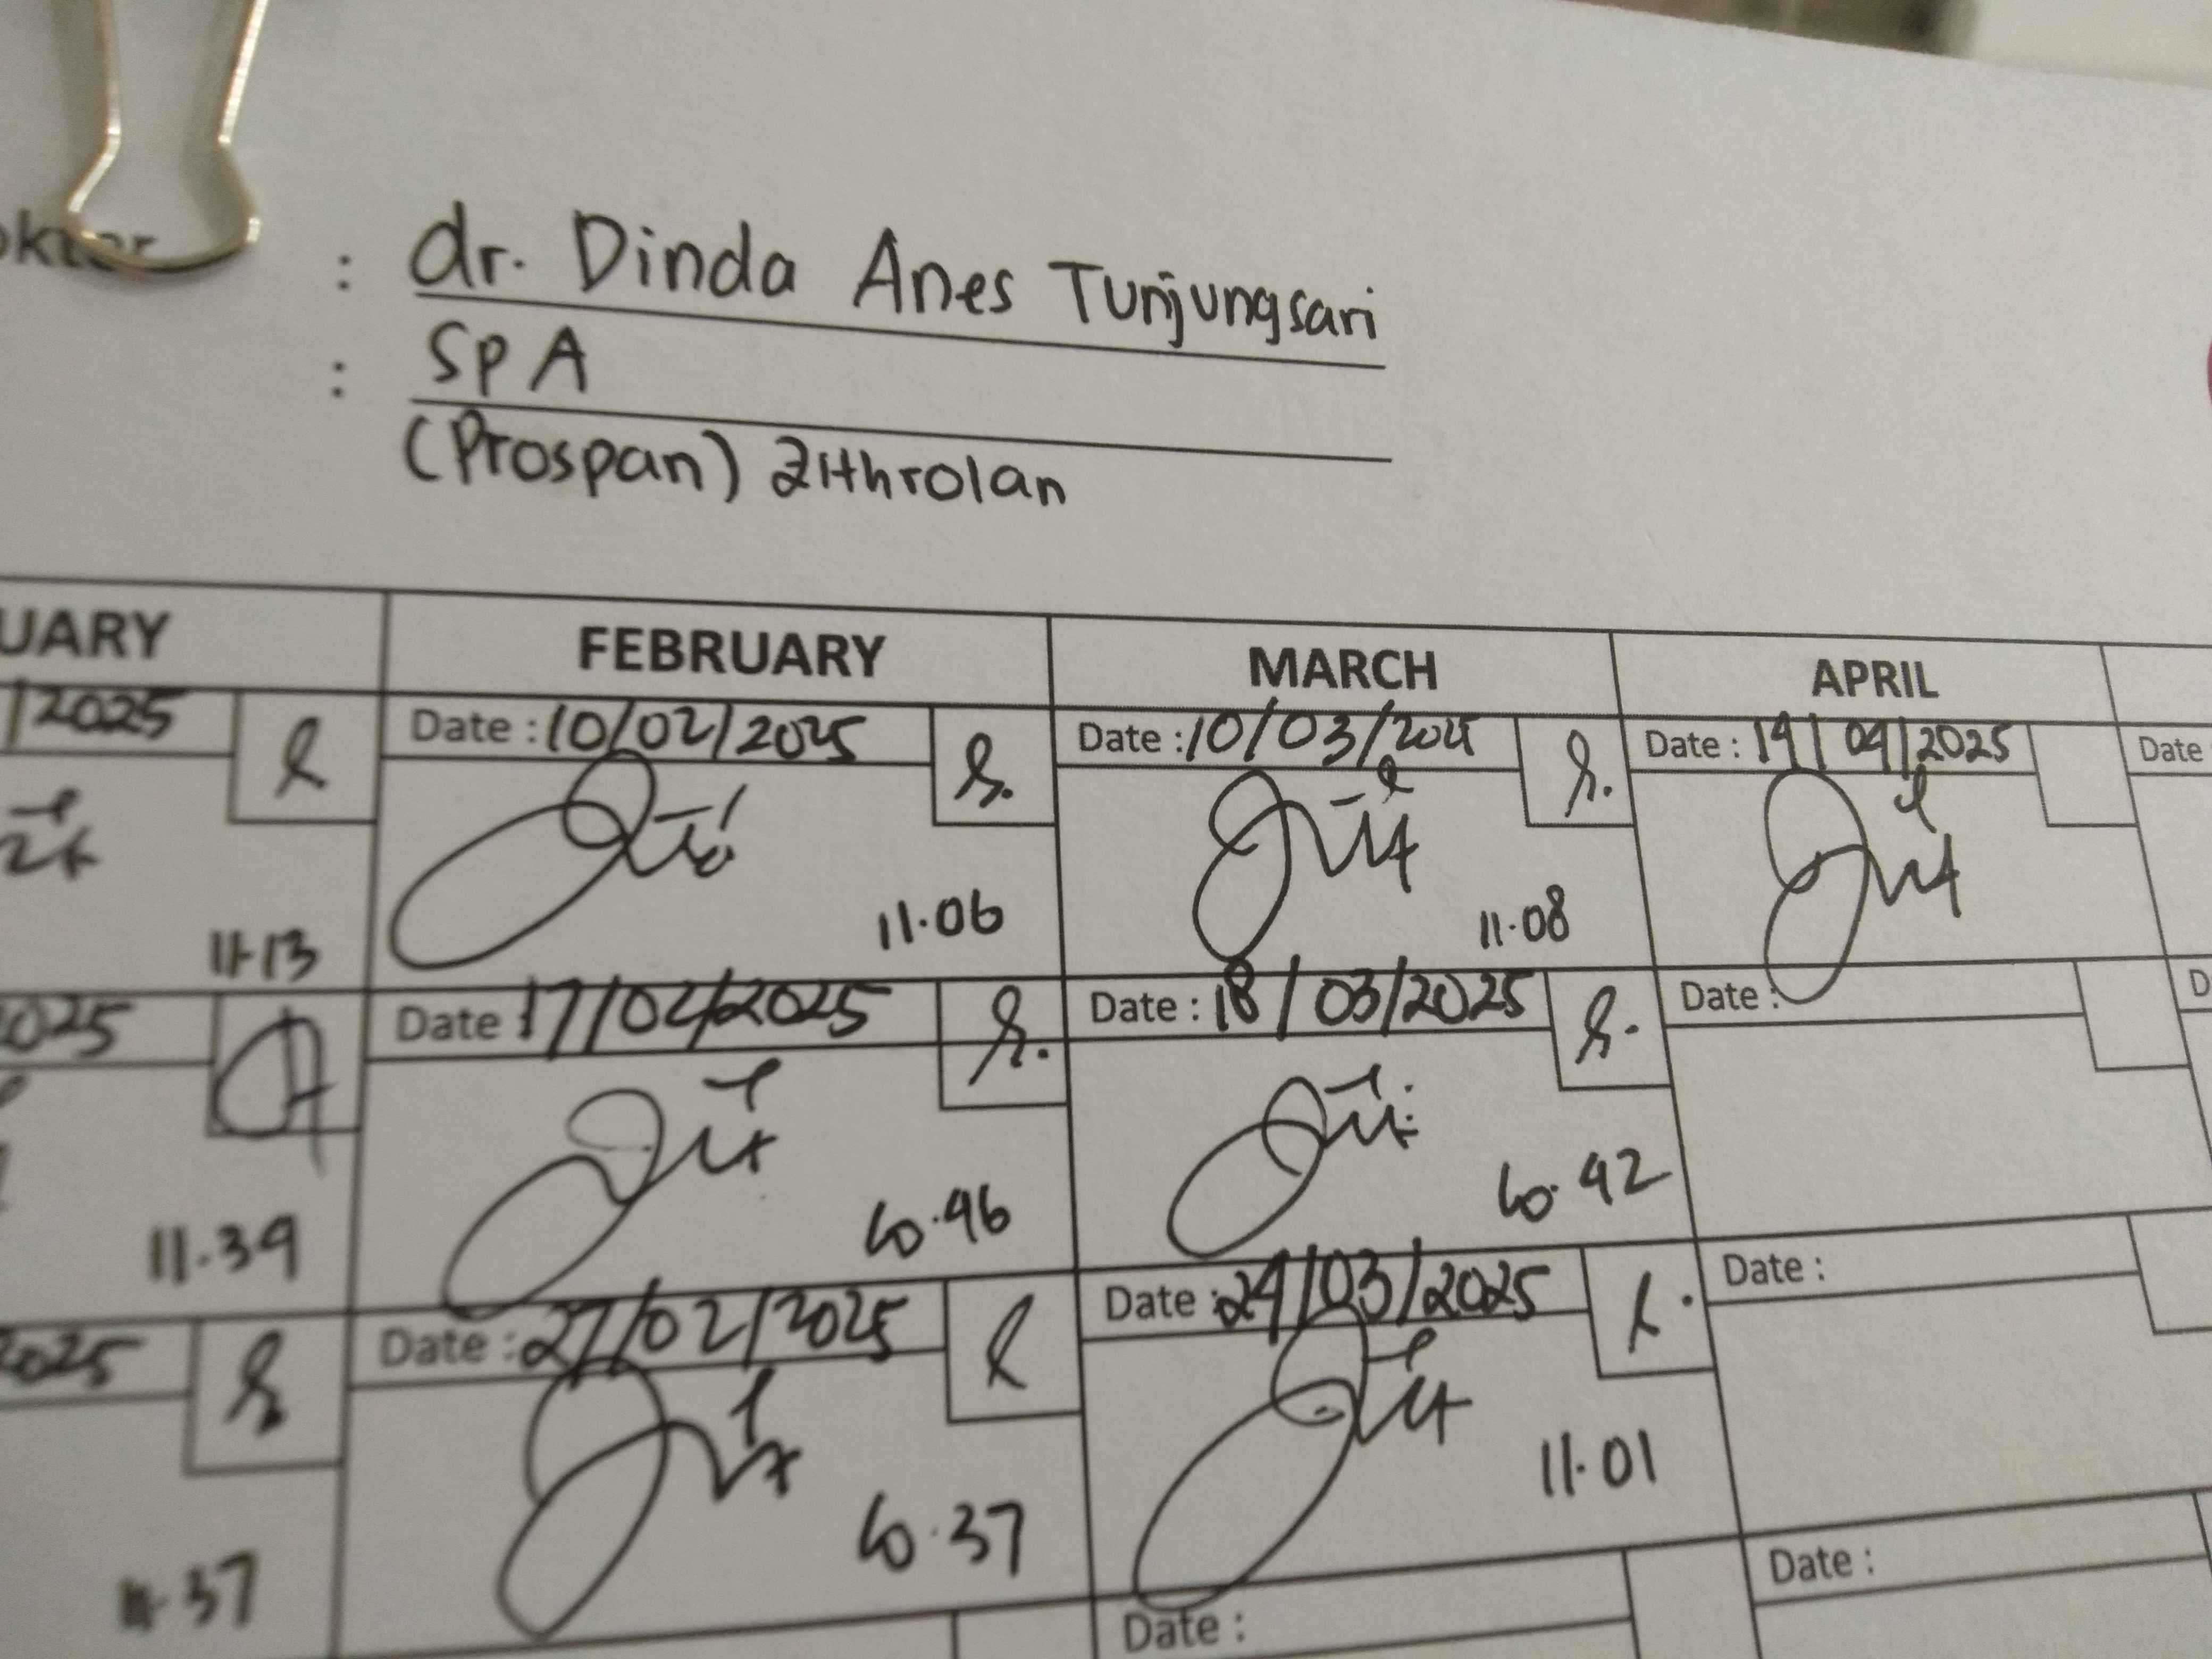 : dr. Dinda Anes Tunjungsari
: SpA
(Prospan) Zithrolan
UARY FEBRUARY MARCH APRIL
/2025 Date : 10/02/2025 Date : 10/03/2025 Date : 14/04/2025 Date
11.13 11.06 11.08
2025 Date 17/02/2025 Date : 18/03/2025 Date : D
11.39 10.46 10.42
2025 Date : 27/02/2025 Date : 24/03/2025 Date :
11.37 10.37 11.01
Date : Date :